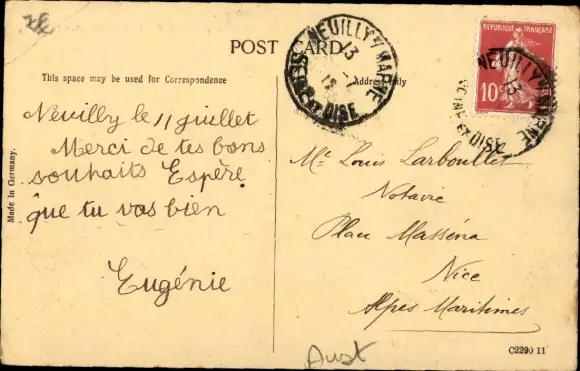 POST CARD
This space may be used for Correspondence
Address Only
Neuilly le 11 juillet
Merci de tes bons
souhaits Espère
que tu vas bien
Eugénie
Made in Germany.
NEUILLY S/ MARNE
13 -7
SEINE ET OISE
REPUBLIQUE FRANÇAISE
10c
NEUILLY S/ MARNE
13
SEINE ET OISE
Me Louis Larboullet
Notaire
Place Masséna
Nice
Alpes Maritimes
Aust
C2290 11